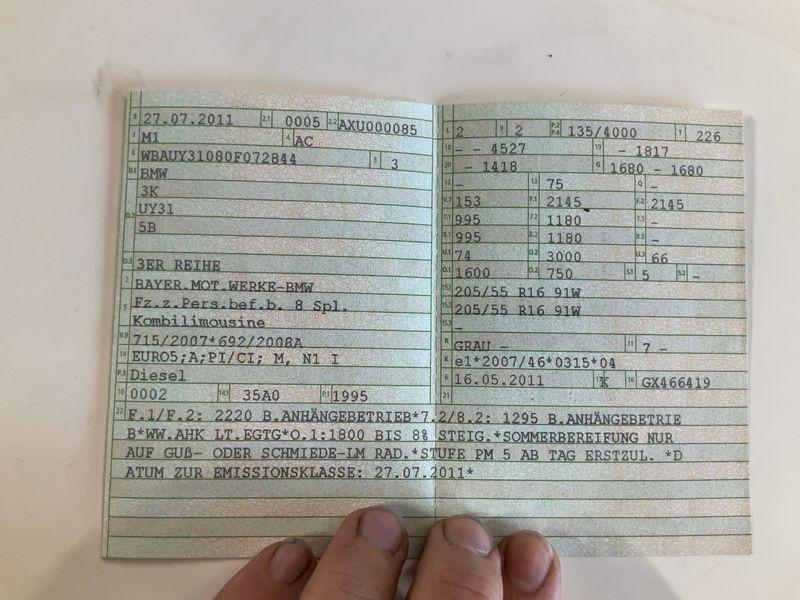 B 27.07.2011 2.1 0005 2.2 AXU000085
J M1 4 AC
E WBAUY31080F072844 3 3
D.1 BMW
3K
D.2 UY31
5B
D.3 3ER REIHE
2 BAYER.MOT.WERKE-BMW
5 Fz.z.Pers.bef.b. 8 Spl.
Kombilimousine
V.9 715/2007*692/2008A
14 EURO5;A;PI/CI; M, N1 I
P.3 Diesel
10 0002 14.1 35A0 P.1 1995
L 2 9 2 P.2 P.4 135/4000 T 226
18 - - 4527 19 - 1817
20 - 1418 G 1680 - 1680
12 - 13 75 Q -
V.7 153 F.1 2145 F.2 2145
7.1 995 7.2 1180 7.3 -
8.1 995 8.2 1180 8.3 -
U.1 74 U.2 3000 U.3 66
O.1 1600 O.2 750 S.1 5 S.2 -
15.1 205/55 R16 91W
15.2 205/55 R16 91W
15.3 -
R GRAU - 11 7 -
K e1*2007/46*0315*04
6 16.05.2011 17 K 16 GX466419
21
22 F.1/F.2: 2220 B.ANHÄNGEBETRIEB*7.2/8.2: 1295 B.ANHÄNGEBETRIE
B*WW.AHK LT.EGTG*O.1:1800 BIS 8% STEIG.*SOMMERBEREIFUNG NUR
AUF GUß- ODER SCHMIEDE-LM RAD.*STUFE PM 5 AB TAG ERSTZUL. *D
ATUM ZUR EMISSIONSKLASSE: 27.07.2011*